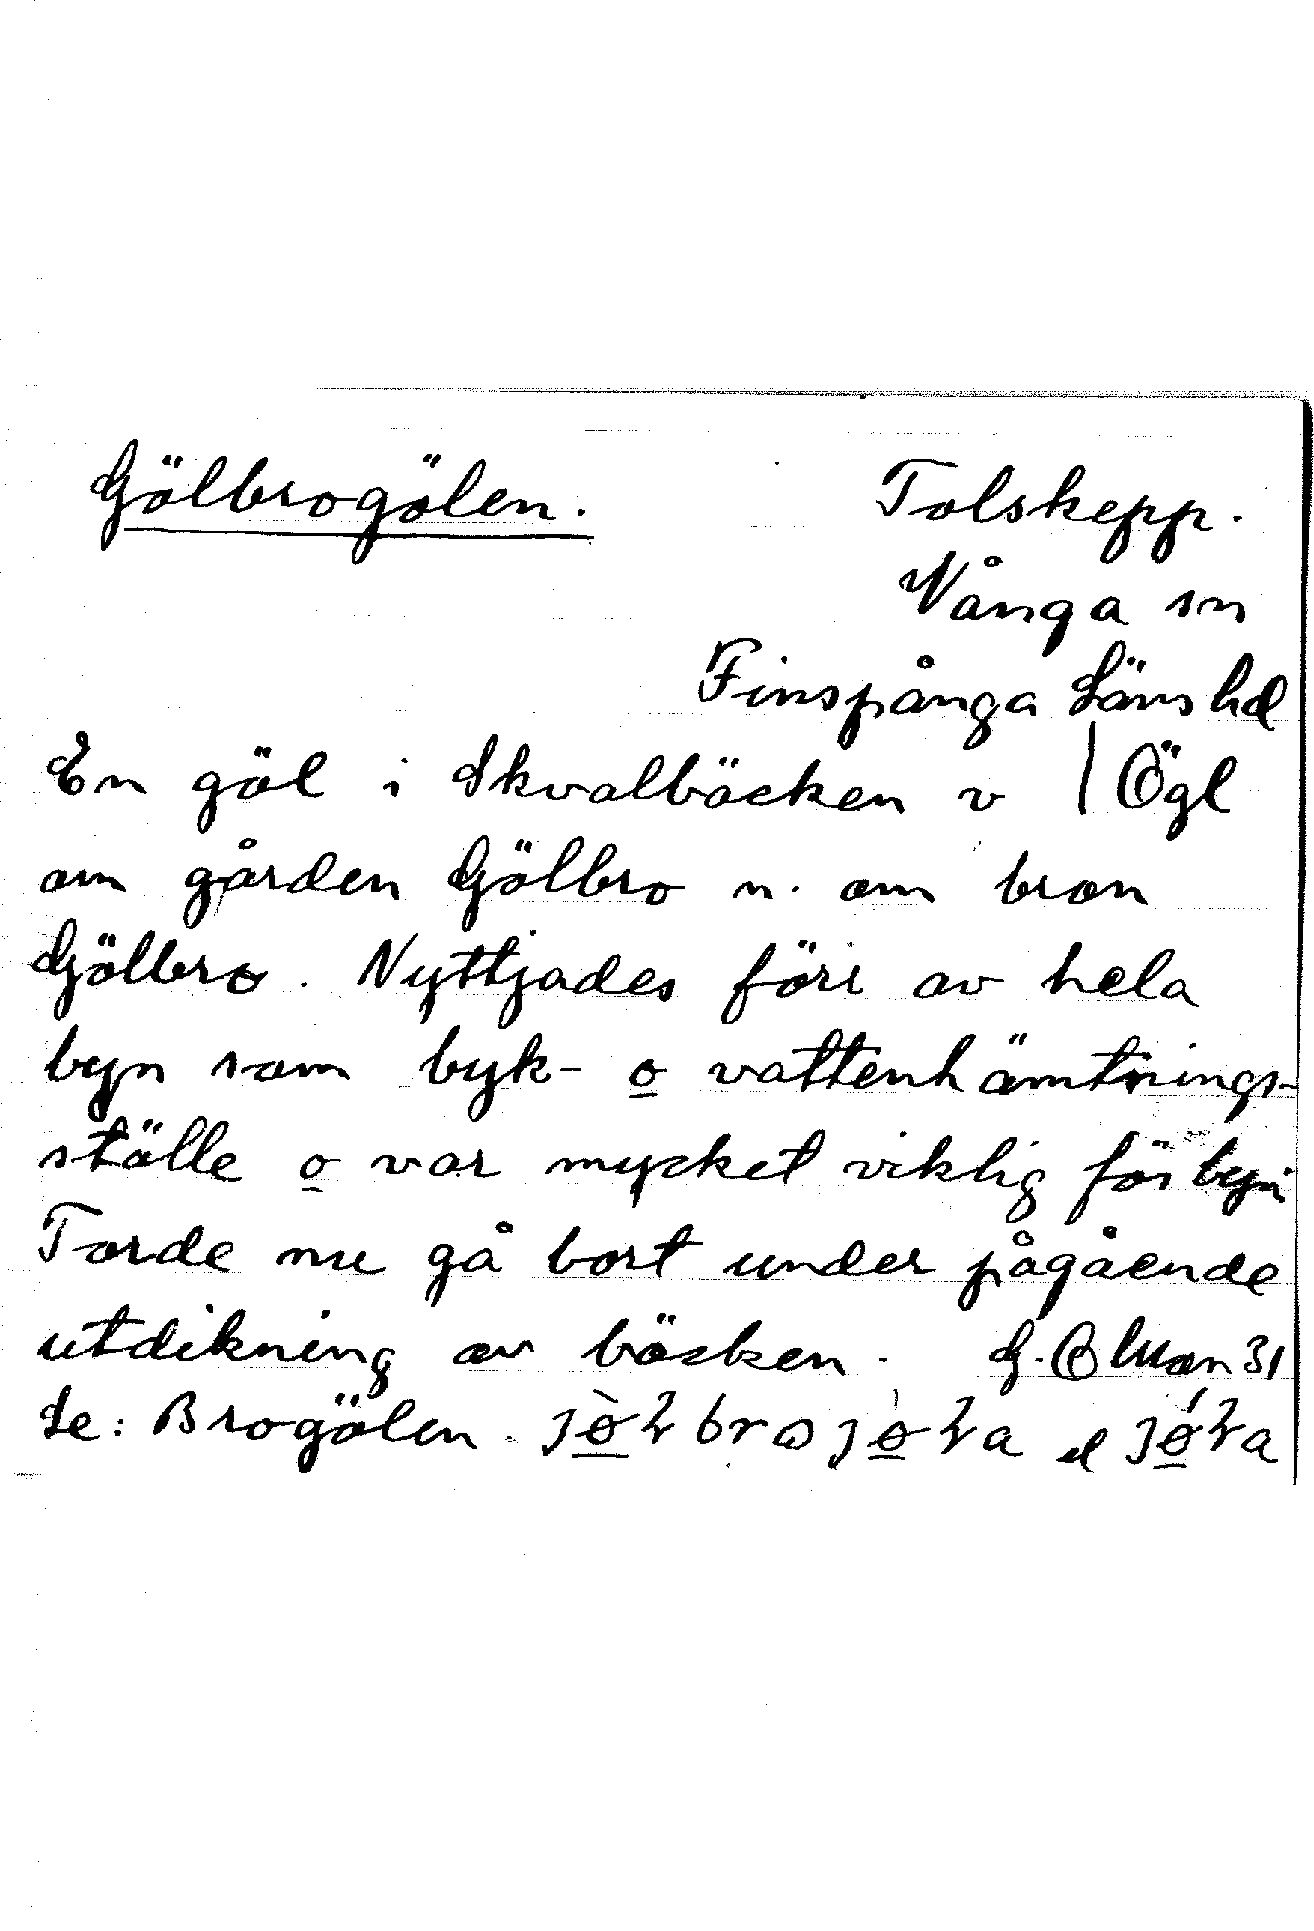 Gölbrogölen.
Tolskepp.
Vånga sn
Finspånga Läns hd
En göl i Skvalbäcken v | Ögl
om gården Gölbro n. om bron
Gölbro. Nyttjades förr av hela
byn som byk- o vattenhämtnings-
ställe o var mycket viktig för byn
Torde nu gå bort under pågående
utdikning av bäcken. G. 31
Se: Brogölen. el